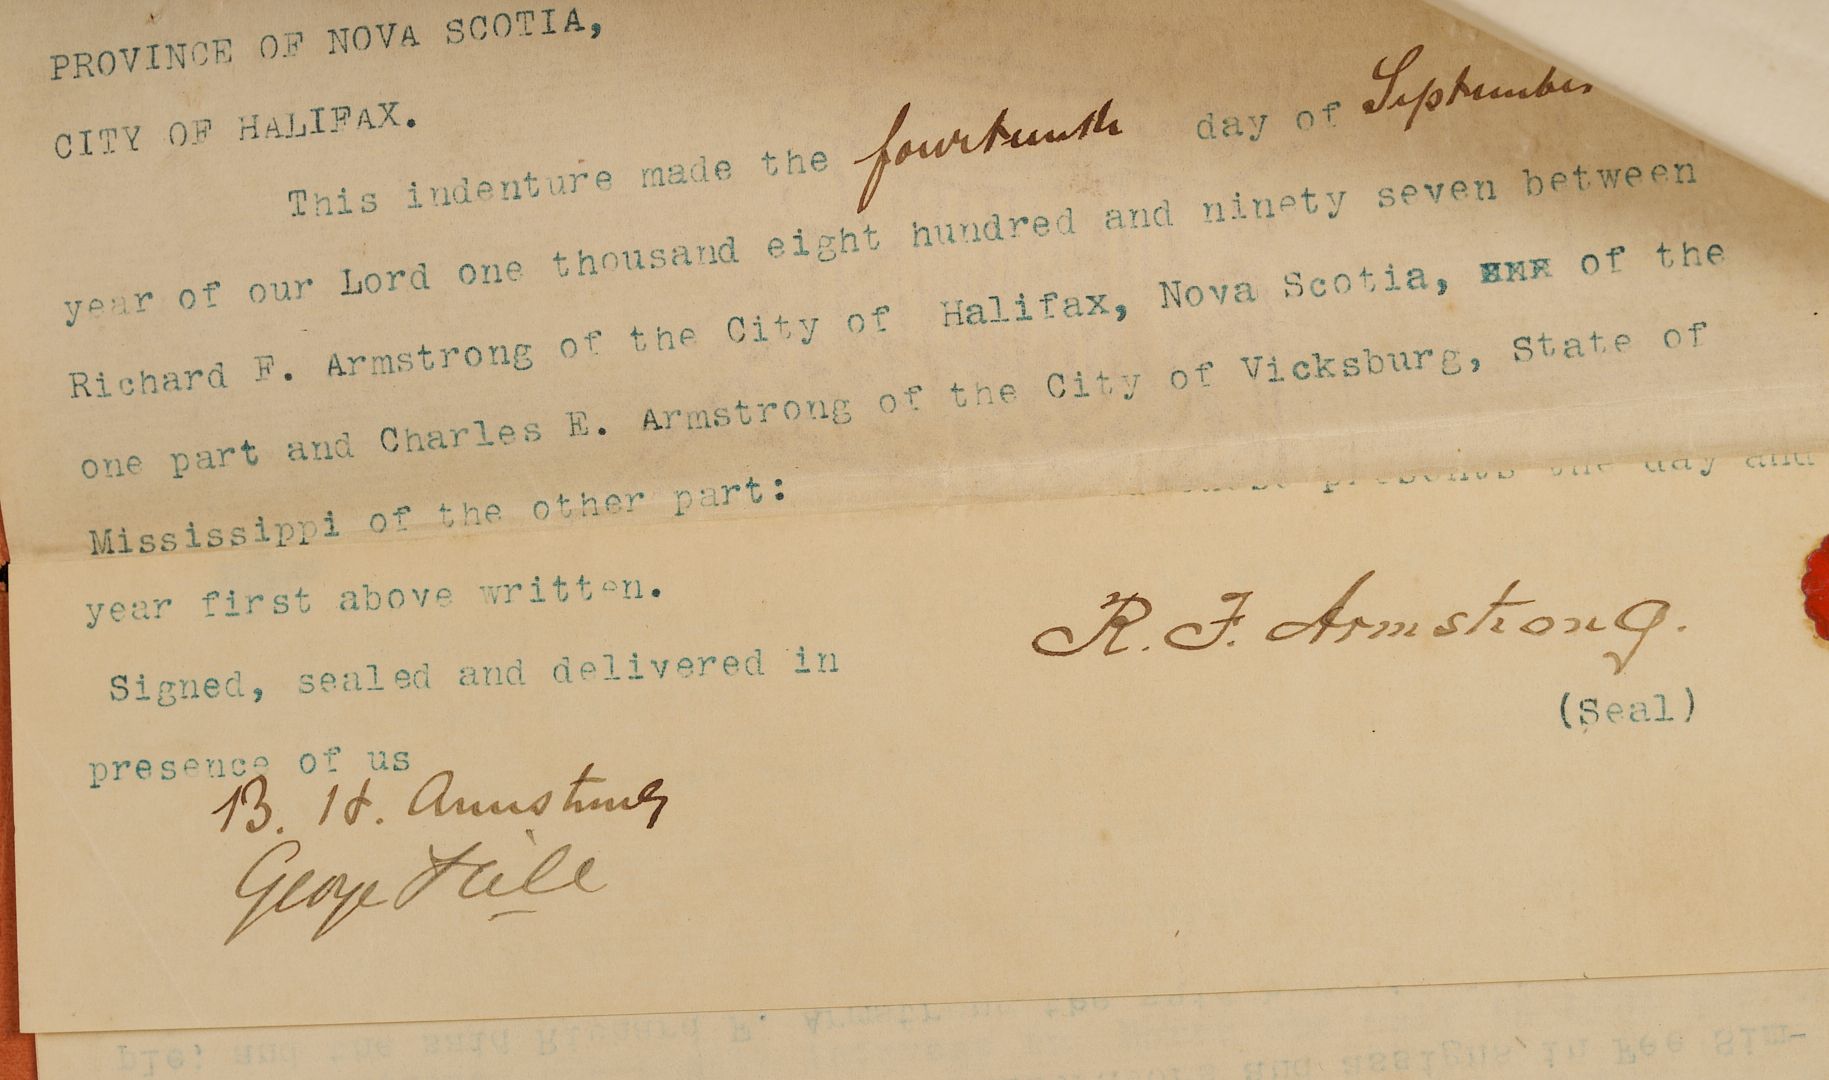 PROVINCE OF NOVA SCOTIA,
CITY OF HALIFAX.
This indenture made the fourteenth day of September
year of our Lord one thousand eight hundred and ninety seven between
Richard F. Armstrong of the City of Halifax, Nova Scotia, of the
one part and Charles E. Armstrong of the City of Vicksburg, State of
Mississippi of the other part:
presents the day and
year first above written.
R. F. Armstrong.
Signed, sealed and delivered in
(Seal)
presence of us
B. H. Armstrong
George Hill
ple; and the said Richard F. Armstrong the
and assigns in Fee Sim-